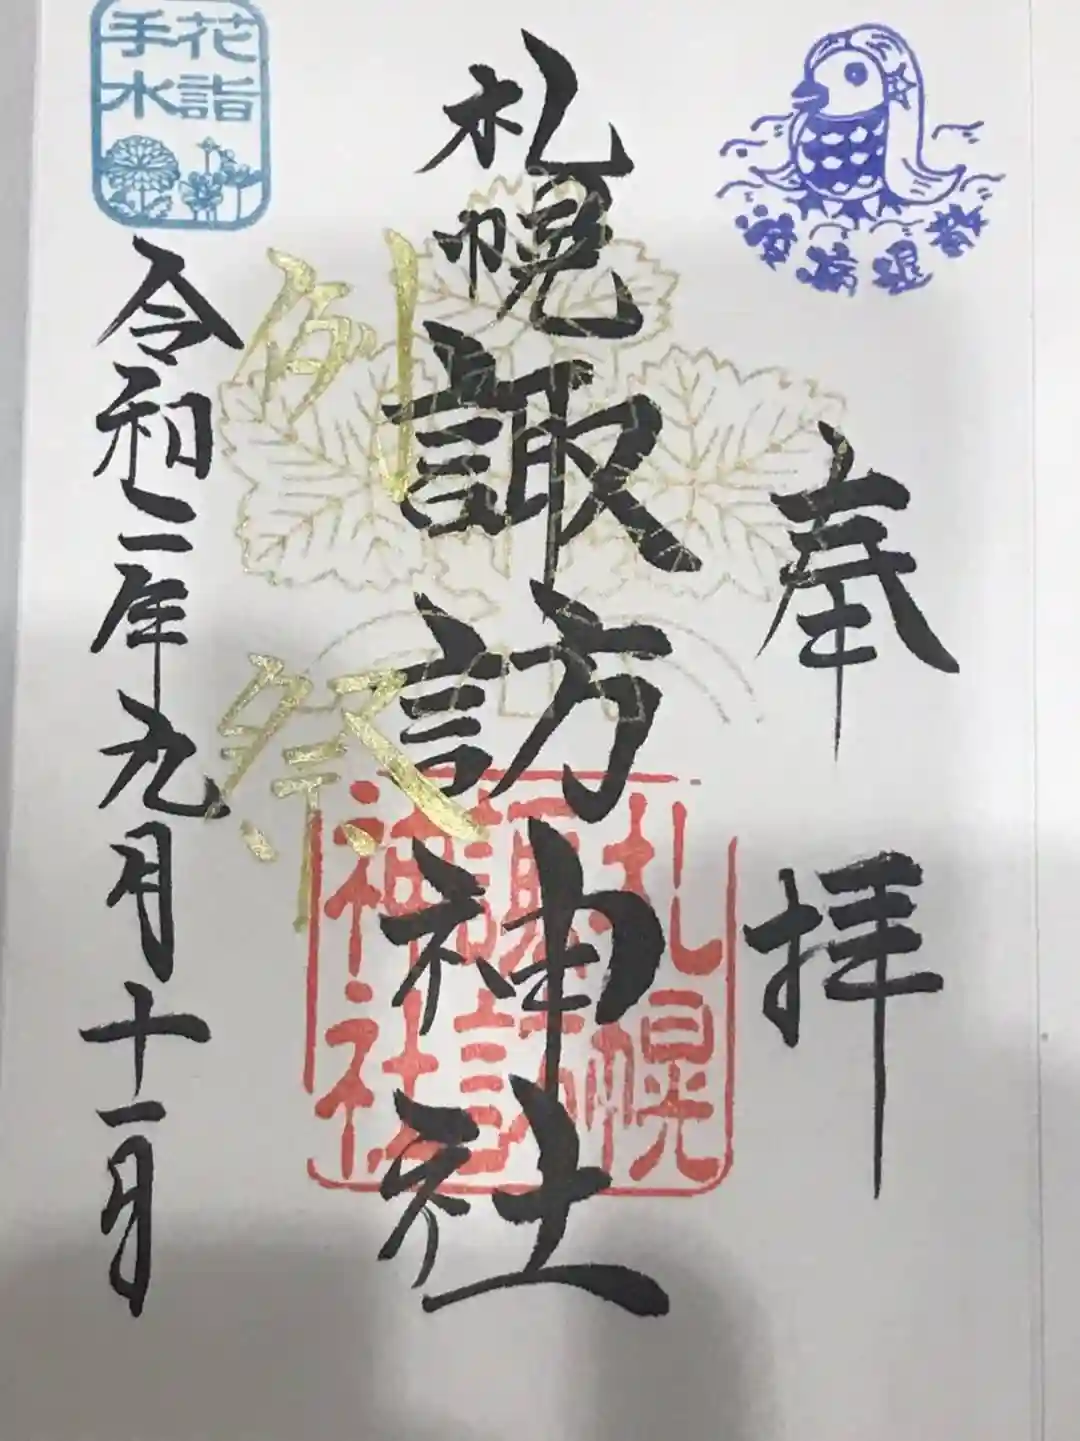 疫病退散
奉拝
札幌諏訪神社
札幌
諏訪
神社
例祭
花詣
手水
令和二年九月十一日